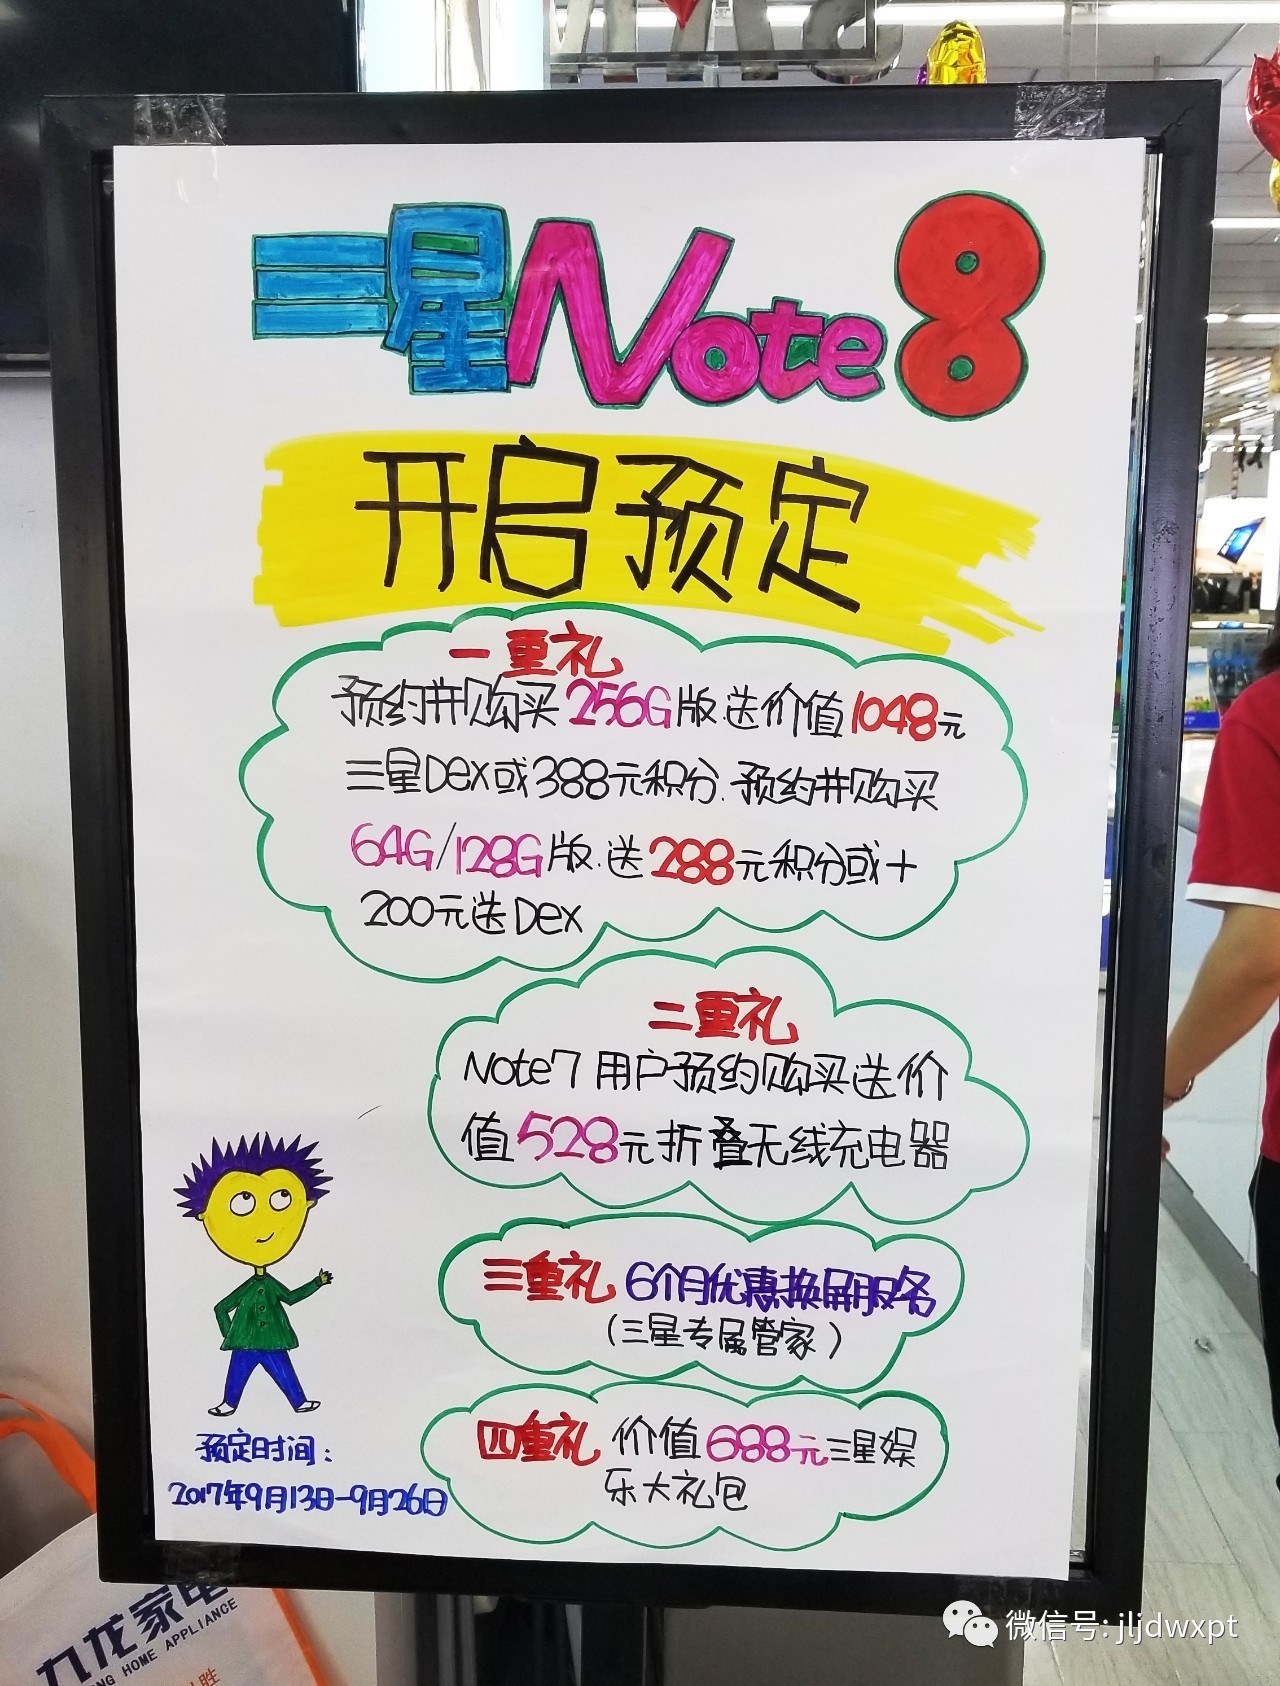 三星Note8
开启预定
一重礼
预约并购买256G版.送价值1048元
三星Dex或388元积分.预约并购买
64G/128G版.送288元积分或+
200元送Dex
二重礼
Note7用户预约购买送价
值528元折叠无线充电器
三重礼 6个月优惠换屏服务
(三星专属管家)
四重礼 价值688元三星娱
乐大礼包
预定时间:
2017年9月13日-9月26日
九龙家电
HOME APPLIANCE
微信号: jljdwxpt